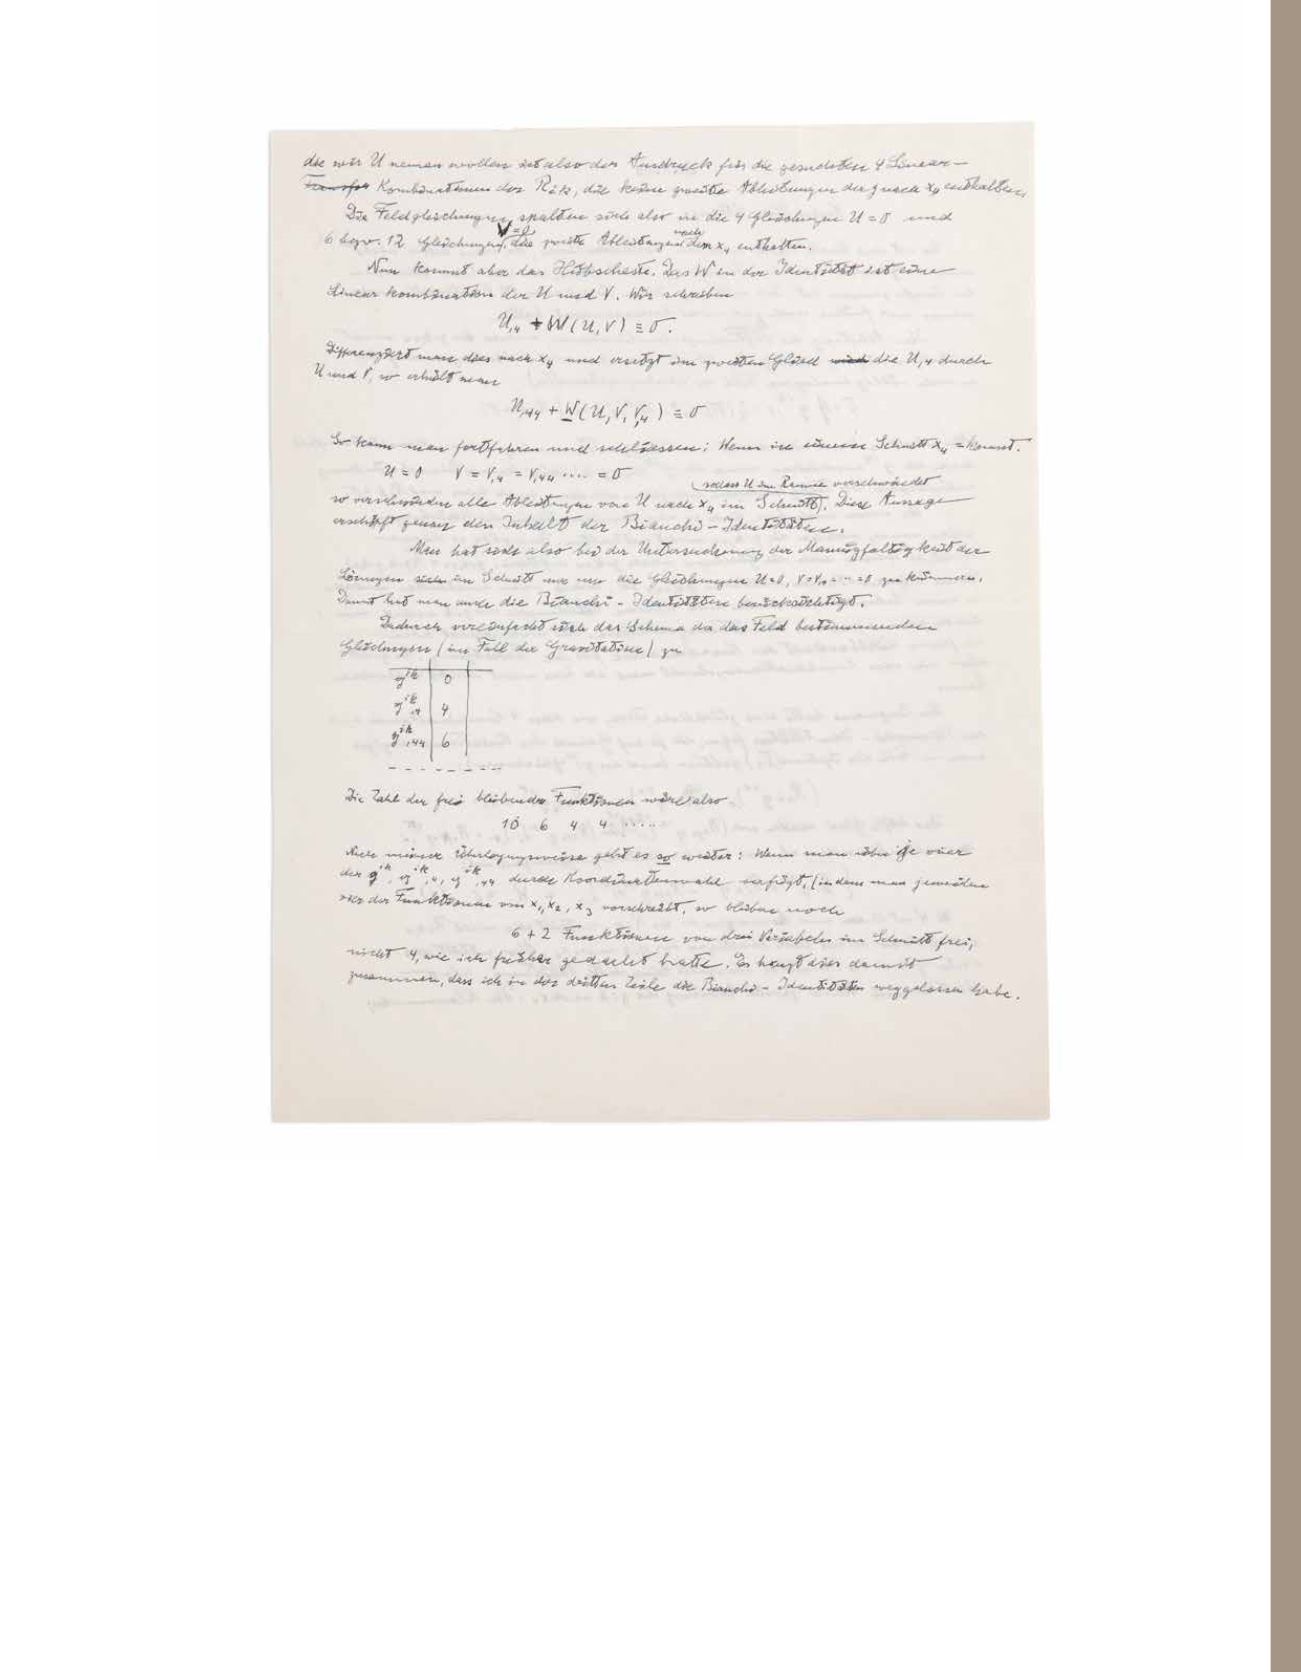 die wir U nennen wollen ist also der Ausdruck für die gesuchten 4 Linear-
Transfor Kombinationen der Rik, die keine zweite Ableitungen der g nach x₄ enthalten.
Die Feldgleichungen spalten sich also in die 4 Gleichungen U = 0 und
6 bezw. 12 Gleichungen V = 0, die zweite Ableitungen nach x₄ enthalten.
Nun kommt aber das Hübscheste. Das W in der Identität ist eine
Linearkombination der U und V. Wir schreiben
U,₄ + W(U, V) ≡ 0.
Differenziert man dies nach x₄ und ersetzt im zweiten Glied die U,₄ durch
U und V, so erhält man
U,₄₄ + W(U, V, V,₄) ≡ 0
So kann man fortfahren und schliessen: Wenn in einem Schnitt x₄ = konst.
U = 0 V = V,₄ = V,₄₄ .... = 0
sodass U im Raume verschwindet
so verschwinden alle Ableitungen von U nach x₄ im Schnitt). Diese Aussage
erschöpft genau den Inhalt der Bianchi-Identitäten.
Man hat sich also bei der Untersuchung der Mannigfaltigkeit der
Lösungen im Schnitt nur um die Gleichungen U=0, V=V,₄ = ... = 0 zu kümmern.
Damit hat man auch die Bianchi-Identitäten berücksichtigt.
Dadurch vereinfacht sich das Schema der das Feld bestimmenden
Gleichungen (im Fall der Gravitation) zu
g^ik | 0
g^ik,₄ | 4
g^ik,₄₄ | 6
- - - - - - - -
Die Zahl der frei bleibenden Funktionen wäre also
10 6 4 4 .....
Nach meiner Überlegungsweise geht es so weiter: Wenn man über je vier
der g^ik, g^ik,₄, g^ik,₄₄ durch Koordinatenwahl verfügt, (indem man jeweilen
vier der Funktionen von x₁, x₂, x₃ vorschreibt, so bleiben noch
6 + 2 Funktionen von drei Variabeln im Schnitt frei,
nicht 4, wie ich früher gedacht hatte. Es hängt dies damit
zusammen, dass ich in der dritten Zeile die Bianchi-Identitäten weggelassen habe.